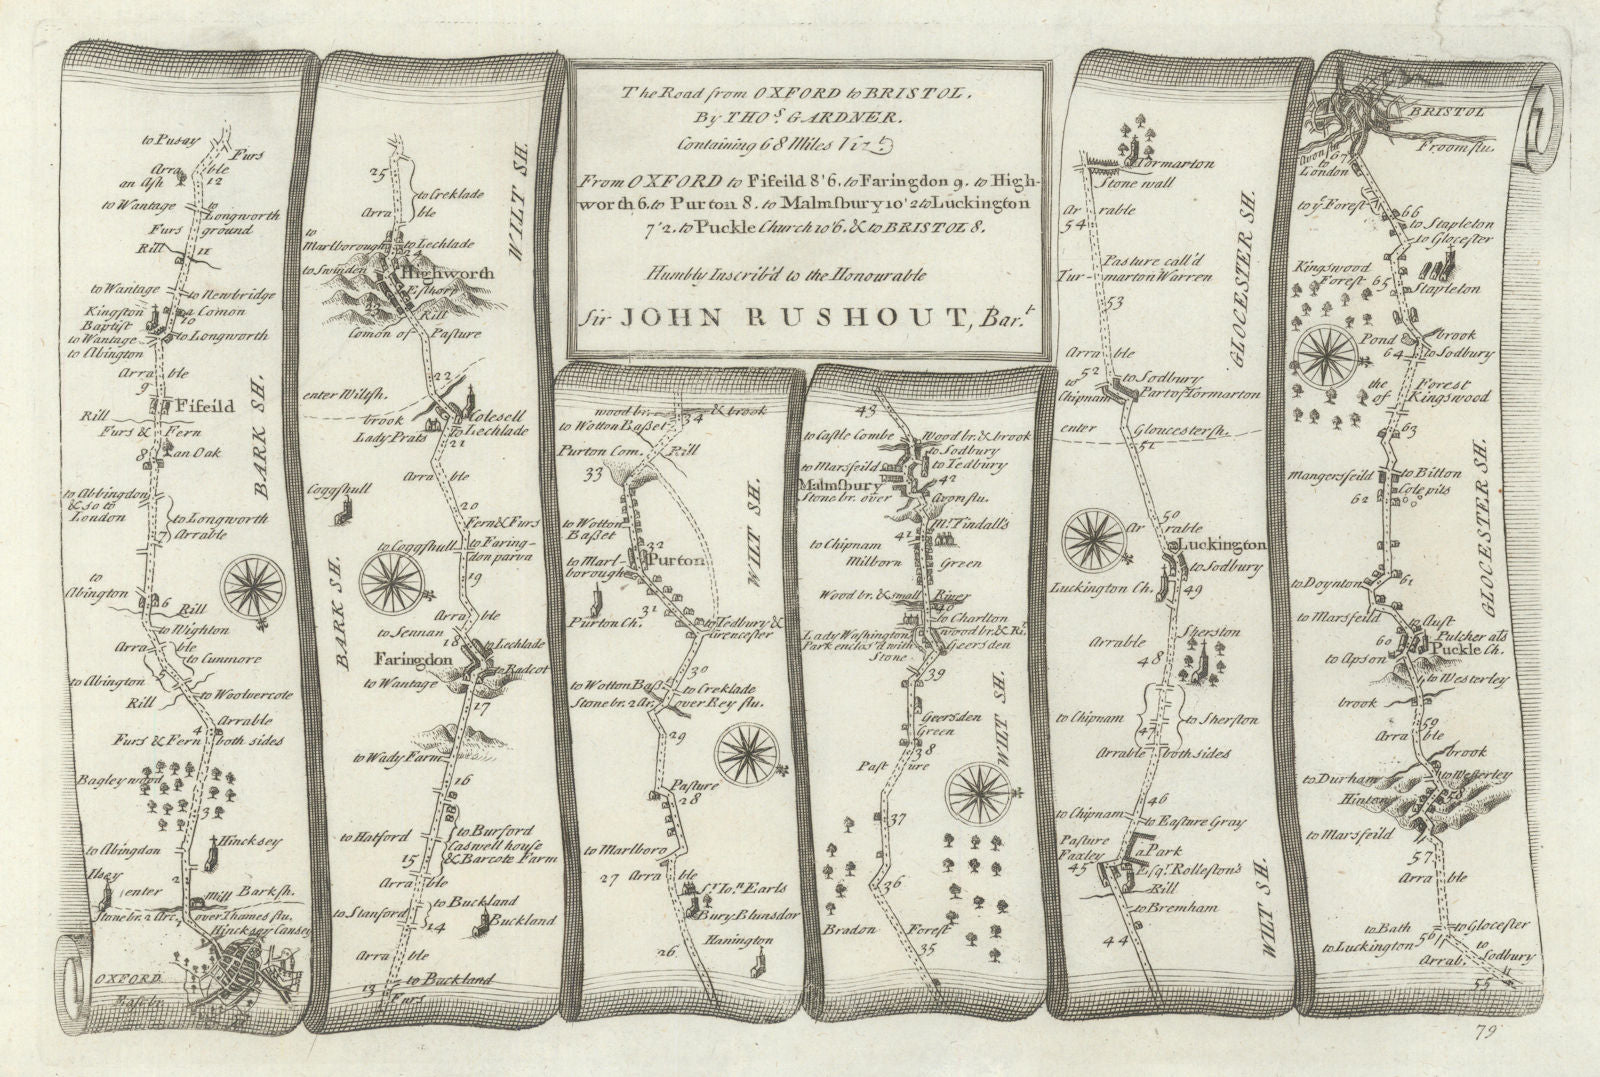 The Road from OXFORD to BRISTOL.
By THOS. GARDNER.
Containing 68 Miles
From OXFORD to Fifeild 8'6. to Faringdon 9. to High-
worth 6. to Purton 8. to Malmsbury 10'2 to Luckington
7'2. to Puckle Church 10'6. & to BRISTOL 8.
Humbly Inscrib'd to the Honourable
Sir JOHN RUSHOUT, Bar.t
to Pusay
Furs
Arra ble
an Ash 12
to Wantage to
Longworth
Furs ground
Rill 11
to Wantage to Newbridge
Kingston a Comon
Baptist 10
to Wantage to Longworth
to Abington
Arra ble
9
BARK SH.
Fifeild
Rill
Furs & Fern
8 an Oak
to Abbingdon
& so to
London
to Longworth
7 Arrable
to
Abington 6
Rill
to Wighton
Arra ble
to Cunmore
5
to Abington
to Woolvercote
Rill
Arrable
4
Furs & Fern both sides
Bagley wood
3
Hincksey
to Abingdon
Ifsey 2
enter Mill Barksh.
Stone br. 2 Arc. over Thames flu.
Hincksey Causey
OXFORD
25
to Creklade
Arra ble
WILT SH.
to
Marlborough to Lechlade
24
to Swinden Highworth
Esthorp
23 Rill
Comon of Pasture
22
enter Wiltsh.
brook Colesell
Lady Prats to Lechlade
21
Arra ble
Coggshull
20
Fern & Furs
to Coggshull to Faring-
don parva
19
BARK SH.
Arra ble
to Sennan
18 to Lechlade
Faringdon
to Radcot
to Wantage
17
to Wady Farm
16
to Hatford to Burford
Caswell house
15 & Barcote Farm
Arra ble
to Buckland
to Stanford
14 Buckland
Arra ble
to Buckland
13 Furs
wood br. & brook
34
to Wotton Basset
Purton Com. Rill
33
WILT SH.
to Wotton
Basset
32
to Marl- Purton
borough
31
Purton Ch. to Tedbury &
Cirencester
30
to Wotton Bass.t to Creklade
Stone br. 2 Ar. over Rey flu.
29
Pasture
28
to Marlboro
27 Arra ble
S.r Jo.n Earls
Bury Blunsdor
Hanington
26
43
to Castle Combe Wood br. & brook
to Sodbury
to Marsfeild to Tedbury
Malmsbury 42
Stone br. over Avon flu.
M.r Tindall's
41
to Chipnam
Milborn Green
Wood br. & small River
40
to Charlton
Lady Washington wood br. & Ri.
Park enclos'd with Geersden
Stone
39
WILT SH.
Geersden
Green
38
Past ure
37
36
Bradon Forest
35
Tormarton
Stone wall
Ar rable
54
GLOCESTER SH.
Pasture call'd
Tur- marton Warren
53
Arra ble
52
to to Sodbury
Chipnam Part of Tormarton
enter Gloucestersh.
51
50
Ar rable
Luckington
to Sodbury
Luckington Ch. 49
Arrable Sherston
48
to Chipnam to Sherston
47
Arrable both sides
46
to Chipnam to Easture Gray
Pasture
Faxley a Park
45 Esq.r Rolleston's
Rill
to Bremham
44
WILT SH.
BRISTOL
Avon flu. Froom flu.
to 67
London
to y.e Forest
66
to Stapleton
to Glocester
Kingswood
Forest 65
Stapleton
Pond brook
64 to Sodbury
the Forest
of Kingswood
63
Mangersfeild to Bitton
62 Cole pits
GLOCESTER SH.
to Doynton 61
to Marsfeild
to Aust
60 Pulcher als
Puckle Ch.
to Apson
to Westerley
brook
59
Arra ble
brook
to Durham to Westerley
Hinton 58
to Marsfeild
57
Arra ble
to Bath to Glocester
to Luckington 56
to
Sodbury
Arrab. 55
79